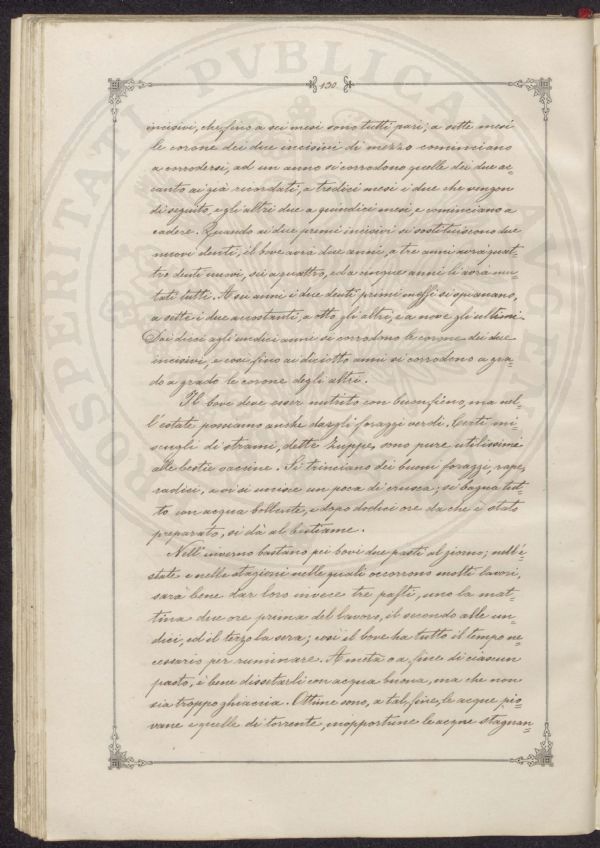 130
PROSPERITATI PVBLICAE AVGENDAE
incisivi, che fino a sei mesi sono tutti pari; a sette mesi
le corone dei due incisivi di mezzo cominciano
a corrodersi, ad un anno si corrodono quelle dei due ac=
canto ai già ricordati, a tredici mesi i due che vengon
di seguito, e gli altri due a quindici mesi, e cominciano a
cadere. Quando ai due primi incisivi si sostituiscono due
nuovi denti, il bove avrà due anni, a tre anni avrà quat=
tro denti nuovi, sei a quattro, ed a cinque anni li avrà mu=
tati tutti. A sei anni i due denti primi messi si spianano,
a sette i due accostanti, a otto gli altri, e a nove gli ultimi.
Dai dieci agli undici anni si corrodono le corone dei due
incisivi, e così fino ai diciotto anni si corrodono a gra=
do a grado le corone degli altri.
Il bove deve esser nutrito con buon fieno, ma nel=
l'estate possiamo anche dargli foraggi verdi. Certi mi=
scugli di strami, dette Zuppe, sono pure utilissimi
alle bestie vaccine. Si trinciano dei buoni foraggi, rape,
radici, e vi si unisce un poca di crusca; si bagna tut=
to con acqua bollente, e dopo dodici ore da che è stato
preparato, si dà al bestiame.
Nell'inverno bastano pei bovi due pasti al giorno; nell'e=
state e nelle stagioni nelle quali occorrono molti lavori,
sarà bene dar loro invece tre pasti, uno la mat=
tina due ore prima del lavoro, il secondo alle un=
dici, ed il terzo la sera; così il bove ha tutto il tempo ne=
cessario per ruminare. A metà o a fine di ciascun
pasto, è bene dissetarli con acqua buona, ma che non
sia troppo ghiaccia. Ottime sono, a tal fine, le acque pio=
vane e quelle di torrente, inopportune le acque stagnan=